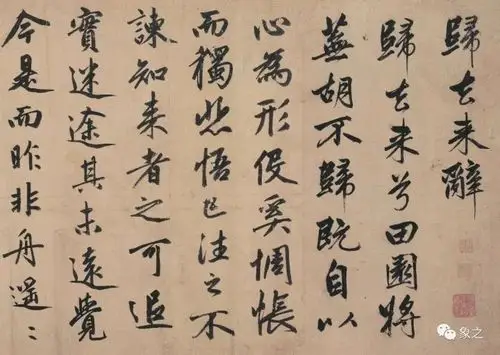 歸去来辭
歸去来兮田園将
蕪胡不歸既自以
心為形役奚惆悵
而獨悲悟已往之不
諫知来者之可追
實迷途其未遠覺
今是而昨非舟遥〻
象之